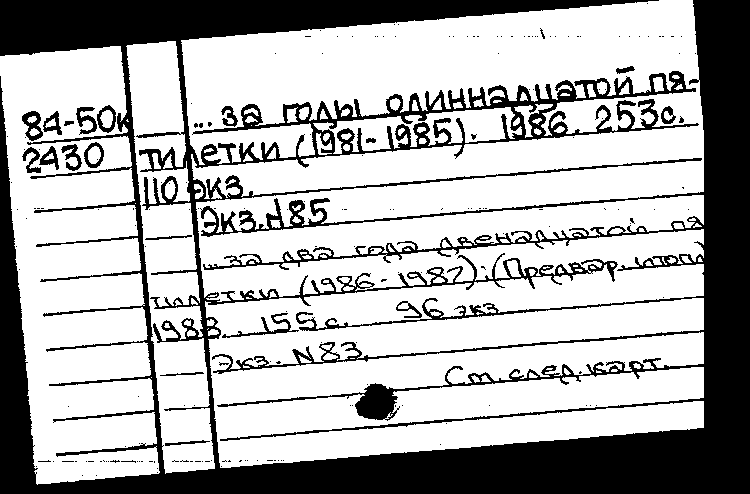 84-50к ... за годы одиннадцатой пя-
2430 тилетки (1981-1985). 1986. 253с.
110 экз.
Экз.N85
...за два года двенадцатой пя
тилетки (1986-1987):(Предвар. итоги)
1988. 155с. 96 экз
Экз. N83.
Ст. след. карт.